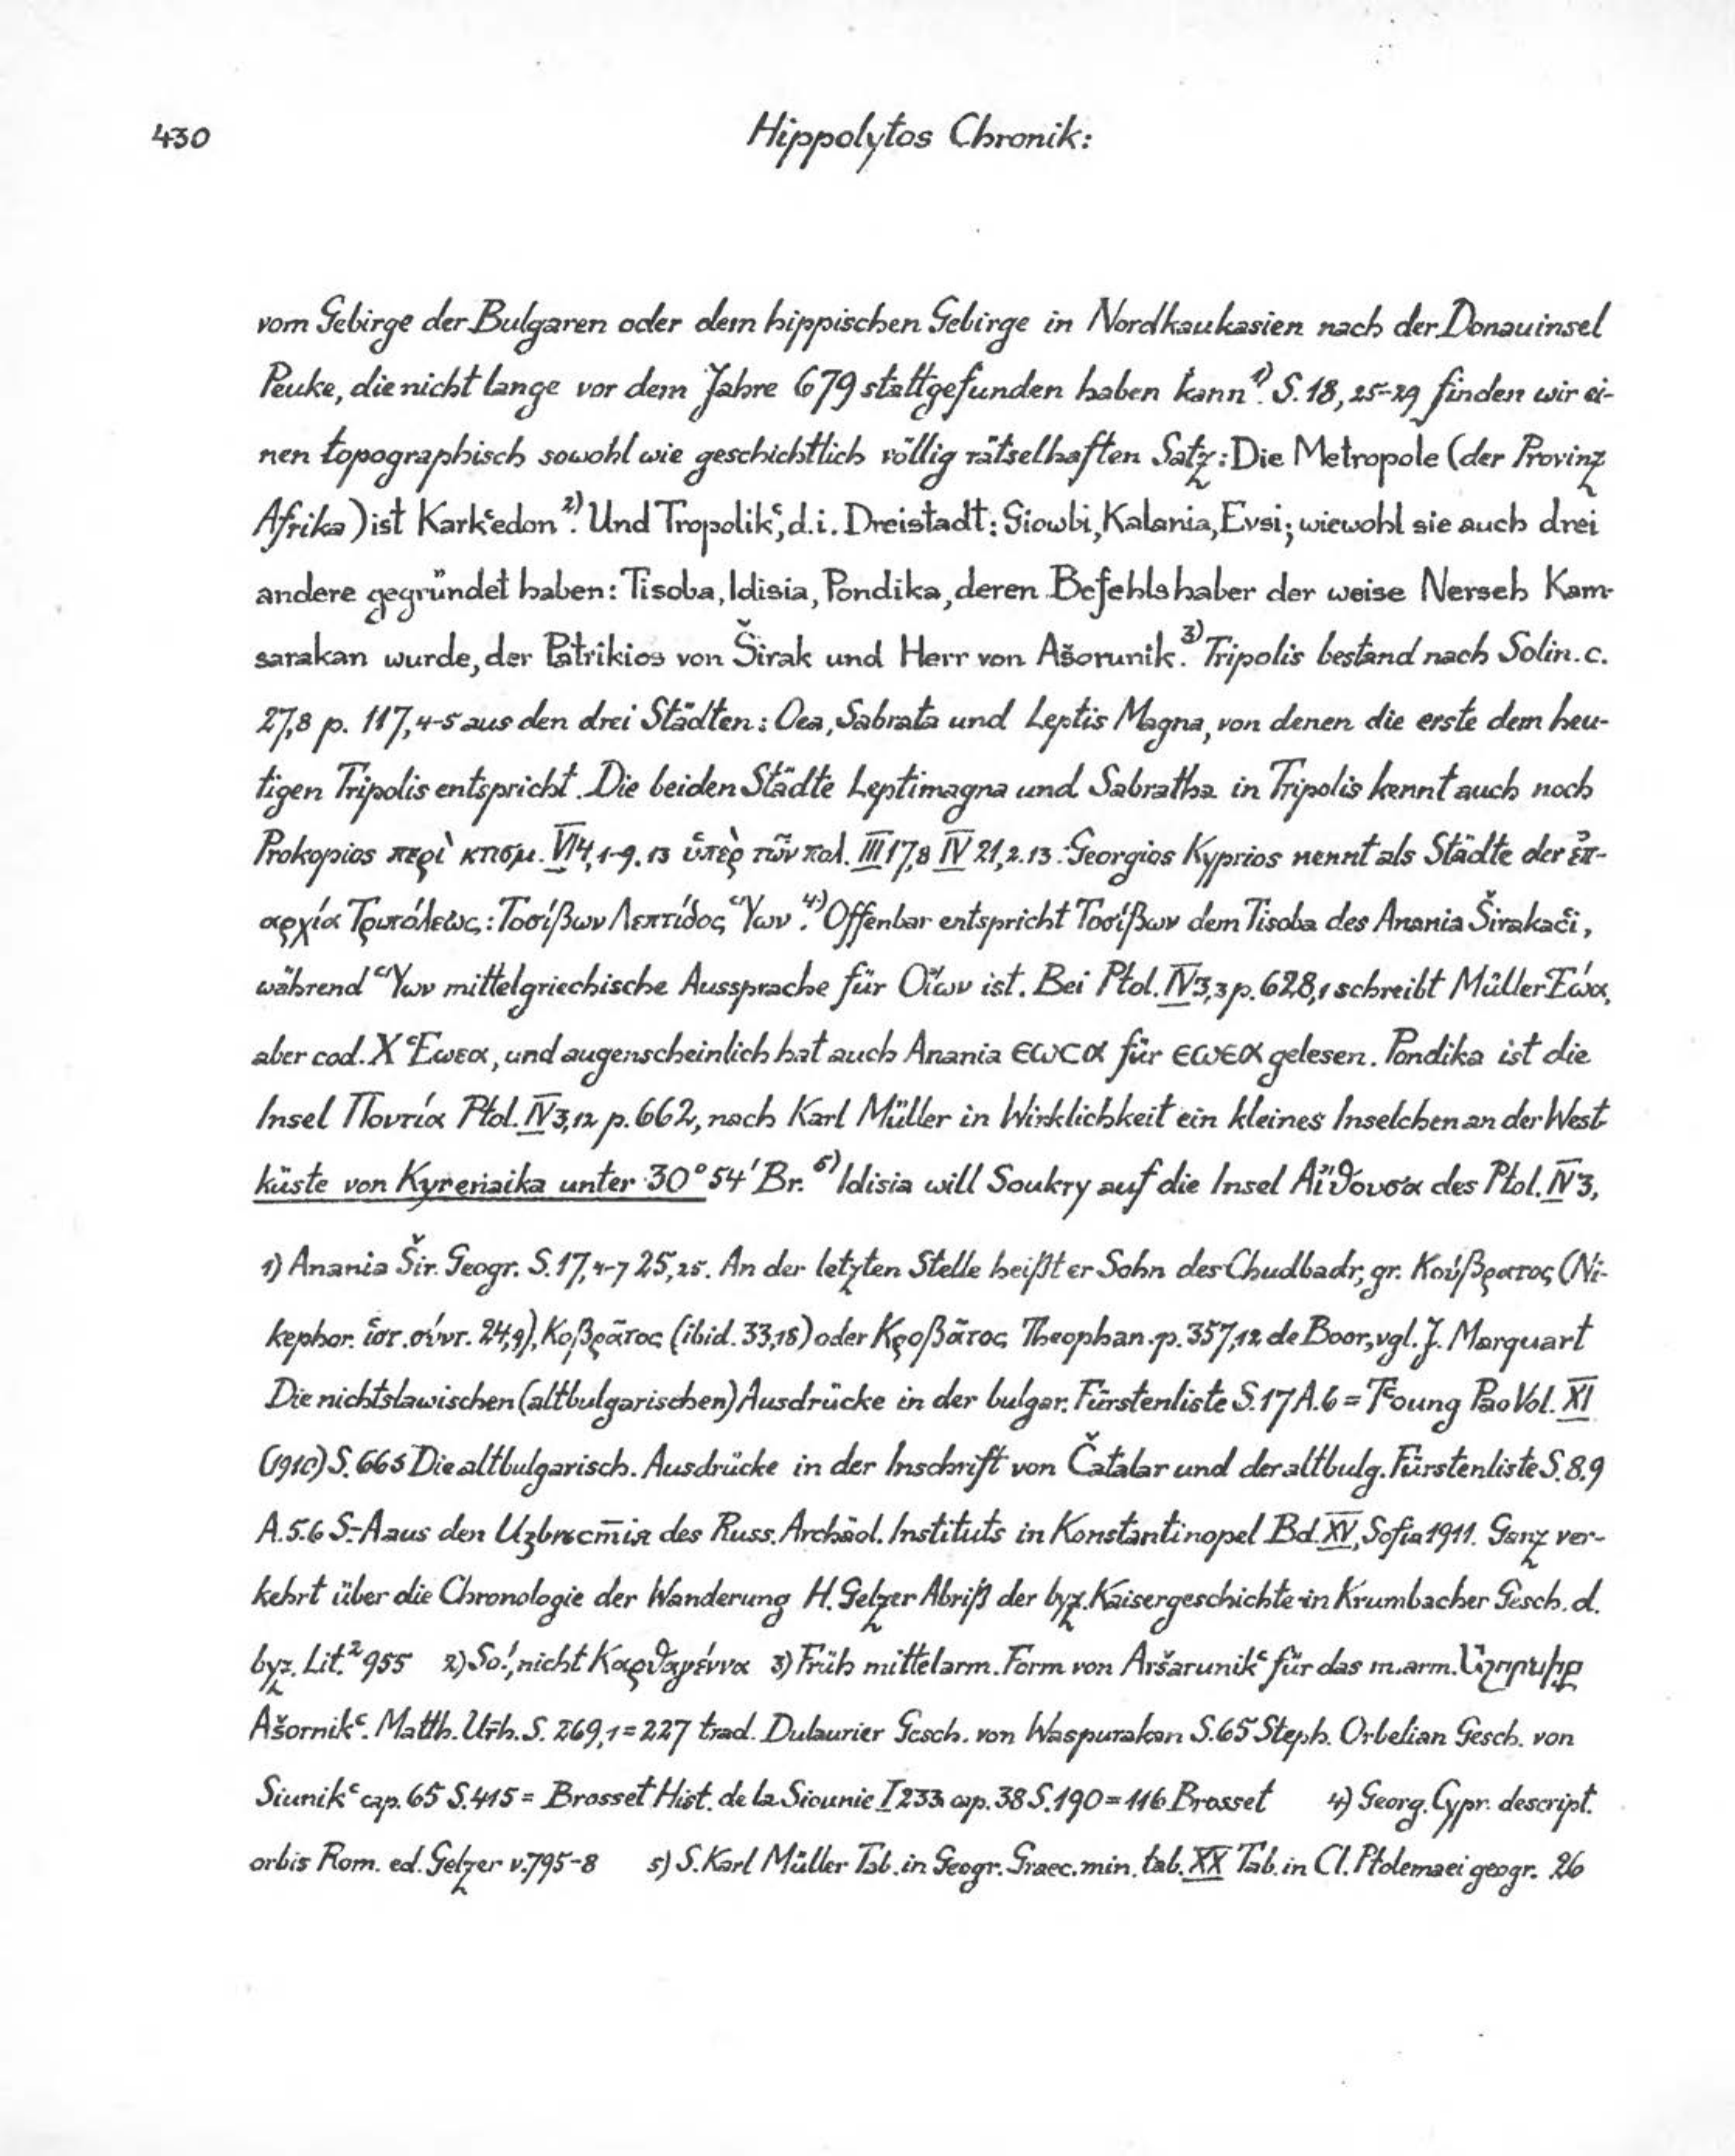 430
Hippolytos Chronik:
vom Gebirge der Bulgaren oder dem hippischen Gebirge in Nordkaukasien nach der Donauinsel
Peuke, die nicht lange vor dem Jahre 679 stattgefunden haben kann¹⁾. S. 18, 25-29 finden wir ei-
nen topographisch sowohl wie geschichtlich völlig rätselhaften Satz: Die Metropole (der Provinz
Afrika) ist Karkʿedon²⁾. Und Tropolikʿ, d.i. Dreistadt: Giowbi, Kalania, Evsi; wiewohl sie auch drei
andere gegründet haben: Tisoba, Idisia, Pondika, deren Befehlshaber der weise Nerseh Kam-
sarakan wurde, der Patrikios von Širak und Herr von Ašorunik.³⁾ Tripolis bestand nach Solin. c.
27,8 p. 117,4-5 aus den drei Städten: Oea, Sabrata und Leptis Magna, von denen die erste dem heu-
tigen Tripolis entspricht. Die beiden Städte Leptimagna und Sabratha in Tripolis kennt auch noch
Prokopios περὶ κτισμ. VI 4,1-9.13 ὑπὲρ τῶν πολ. III 17,8 IV 21,2.13. Georgios Kyprios nennt als Städte der ἐπ-
αρχία Τριπόλεως: Τοσίβων Λεπτίδος Ὕων⁴⁾. Offenbar entspricht Τοσίβων dem Tisoba des Anania Širakaći,
während Ὕων mittelgriechische Aussprache für Οἴων ist. Bei Ptol. IV 3,3 p. 628,1 schreibt Müller Ἐώα,
aber cod. X Ἑωεα, und augenscheinlich hat auch Anania ЄѠСΑ für ЄѠЄΑ gelesen. Pondika ist die
Insel Ποντία Ptol. IV 3,12 p. 662, nach Karl Müller in Wirklichkeit ein kleines Inselchen an der West-
küste von Kyrenaika unter 30° 54′ Br.⁵⁾ Idisia will Soukry auf die Insel Αἴθουσα des Ptol. IV 3,
1) Anania Šir. Geogr. S. 17,4-7 25,25. An der letzten Stelle heißt er Sohn des Chudbadr, gr. Κούβρατος (Ni-
kephor. ἱστ. σύντ. 24,9), Κοβρᾶτος (ibid. 33,15) oder Κροβᾶτος Theophan. p. 357,12 de Boor, vgl. J. Marquart
Die nichtslawischen (altbulgarischen) Ausdrücke in der bulgar. Fürstenliste S. 17 A. 6 = Tʿoung Pao Vol. XI
(1910) S. 665 Die altbulgarisch. Ausdrücke in der Inschrift von Čatalar und der altbulg. Fürstenliste S. 8.9
A. 5.6 S.-A aus den des Russ. Archäol. Instituts in Konstantinopel Bd. XV, Sofia 1911. Ganz ver-
kehrt über die Chronologie der Wanderung H. Gelzer Abriß der byz. Kaisergeschichte in Krumbacher Gesch. d.
byz. Lit.² 955 2) So!, nicht Καρθαγέννα 3) Früh mittelarm. Form von Aršarunikʿ für das m.arm. Աշորնիք
Ašornikʿ. Matth. Urh. S. 269,1 = 227 trad. Dulaurier Gesch. von Waspurakan S. 65 Steph. Orbelian Gesch. von
Siunikʿ cap. 65 S. 415 = Brosset Hist. de la Siounie I 233 cap. 38 S. 190 = 116 Brosset 4) Georg. Cypr. descript.
orbis Rom. ed. Gelzer v. 795-8 5) S. Karl Müller Tab. in Geogr. Graec. min. tab. XX Tab. in Cl. Ptolemaei geogr. 26